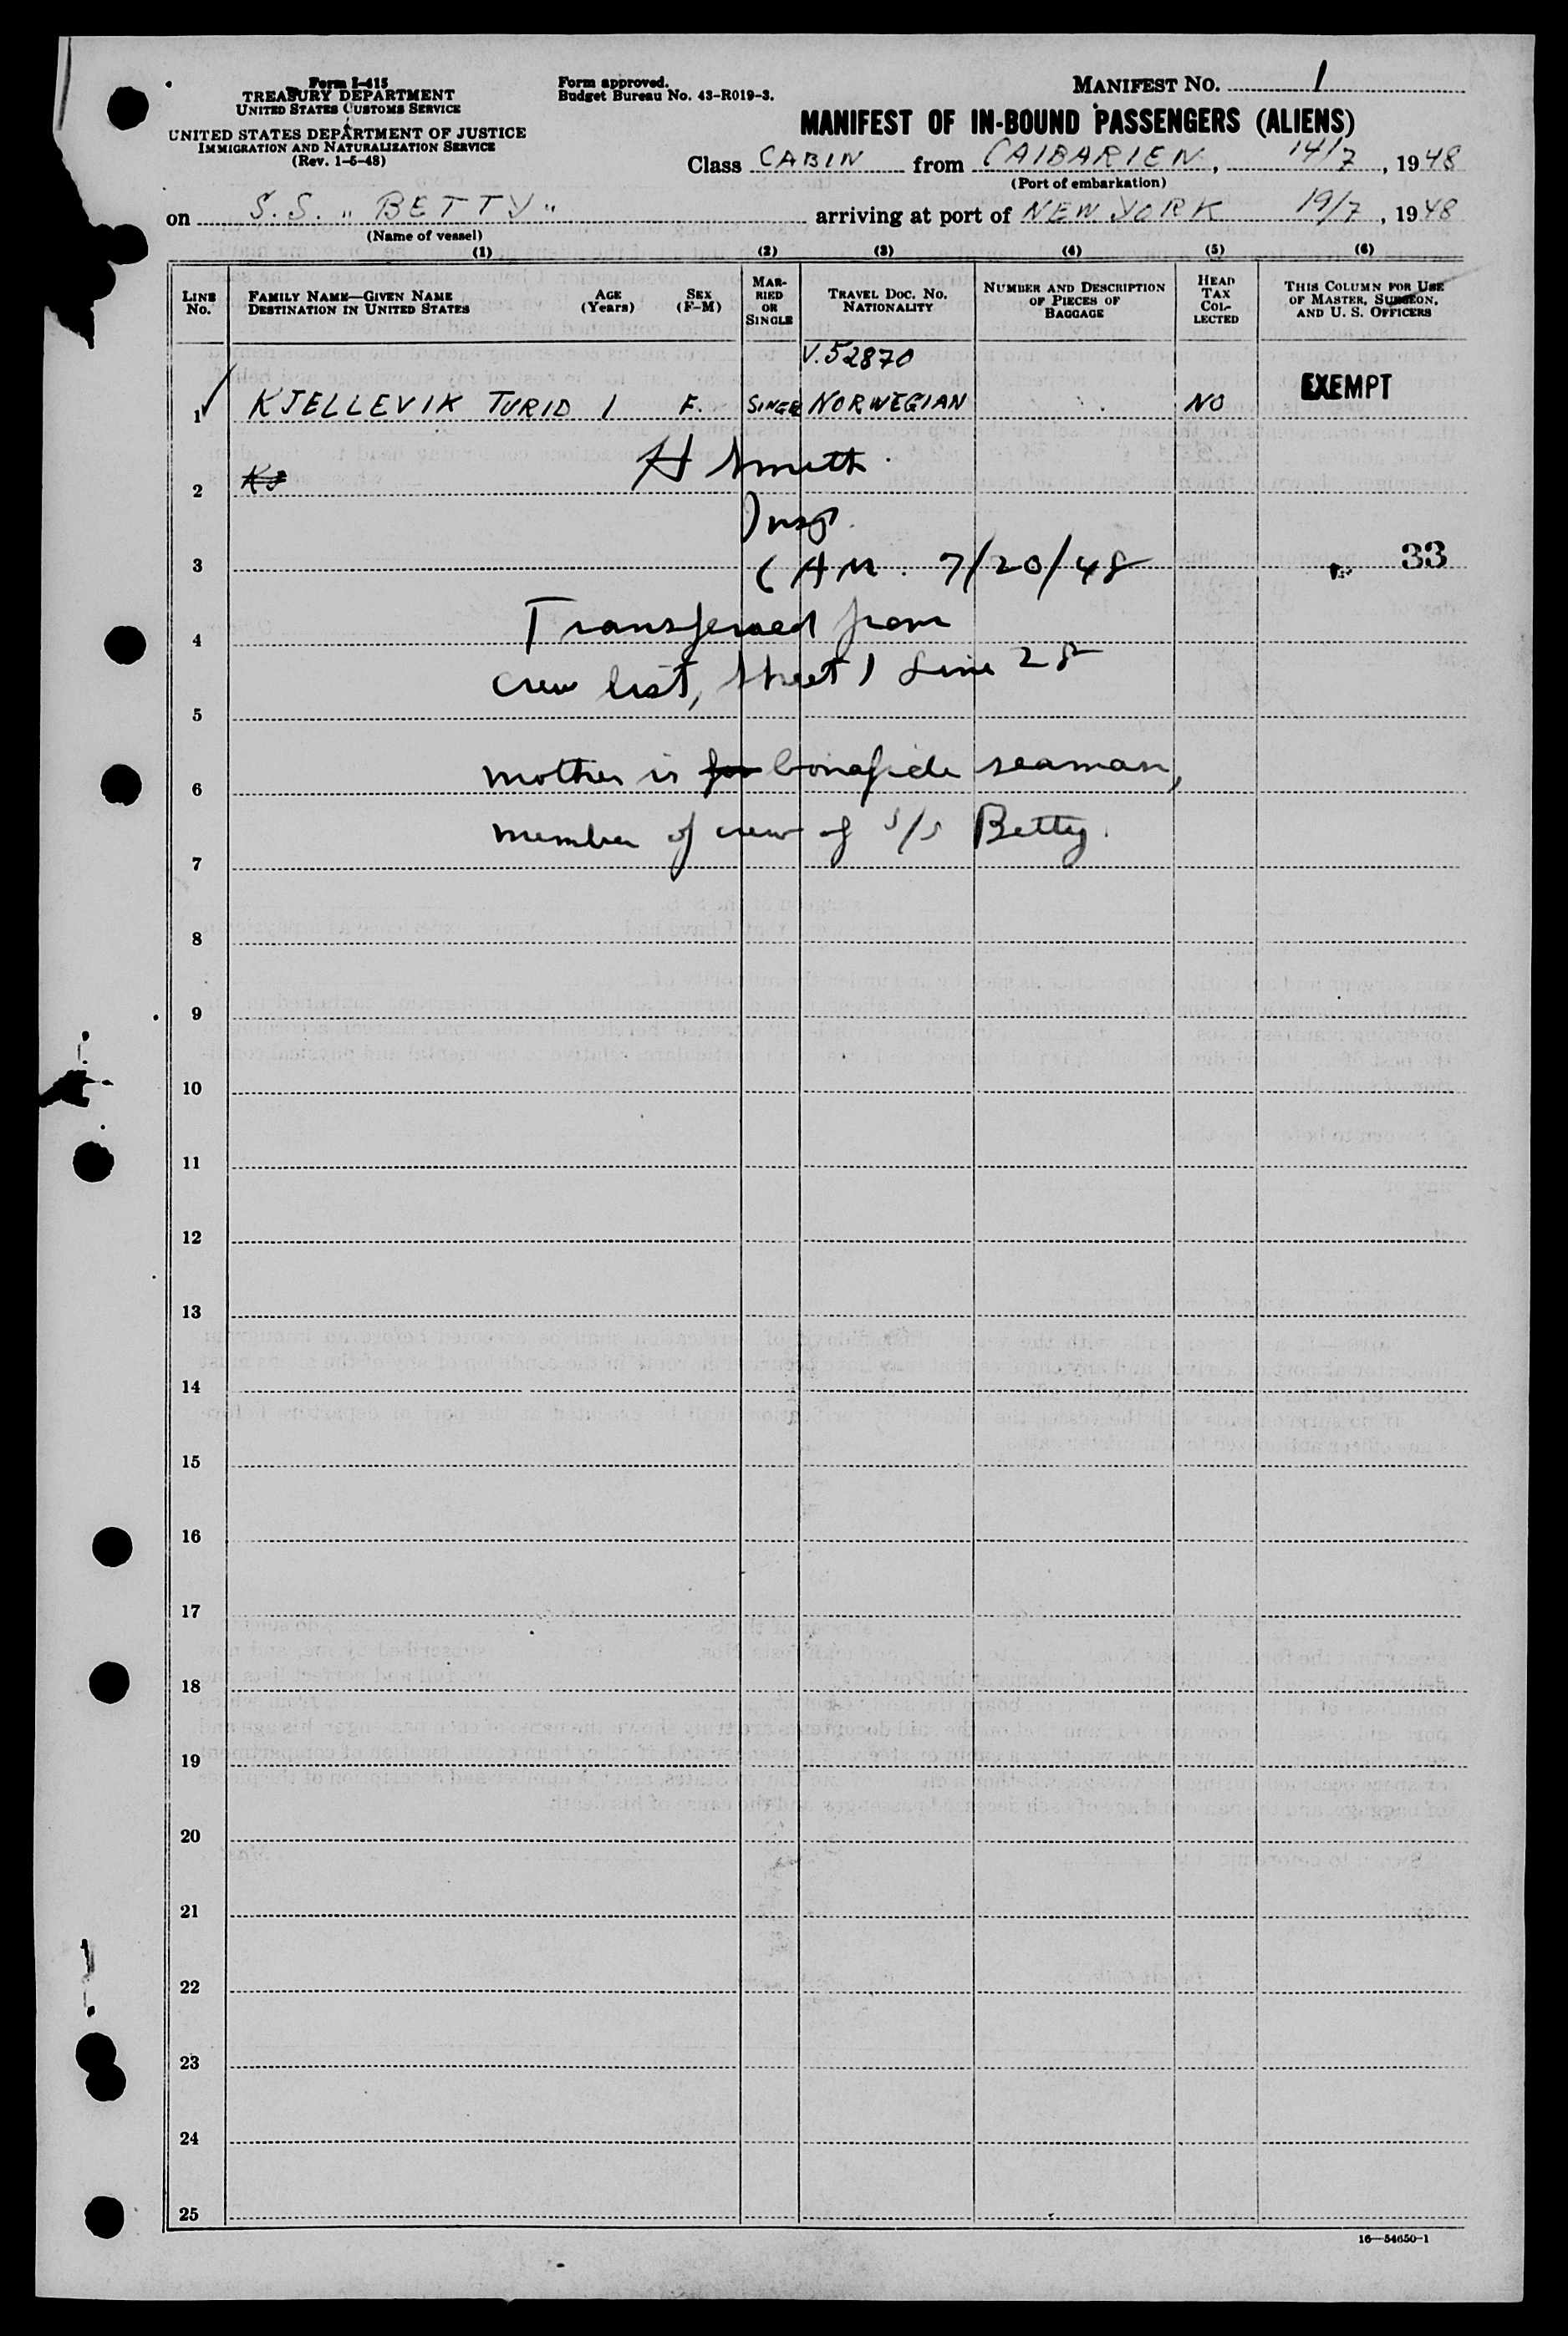 Form I-415
TREASURY DEPARTMENT
UNITED STATES CUSTOMS SERVICE
UNITED STATES DEPARTMENT OF JUSTICE
IMMIGRATION AND NATURALIZATION SERVICE
(Rev. 1-5-48)
Form approved.
Budget Bureau No. 43-R019-3.
MANIFEST NO. 1
MANIFEST OF IN-BOUND PASSENGERS (ALIENS)
Class CABIN from CAIBARIEN, 14/7, 1948
(Port of embarkation)
on S.S. "BETTY" arriving at port of NEW YORK 19/7, 1948
(Name of vessel)
(1) (2) (3) (4) (5) (6)
LINE No. FAMILY NAME—GIVEN NAME DESTINATION IN UNITED STATES AGE (Years) SEX (F-M) MARRIED OR SINGLE TRAVEL DOC. NO. NATIONALITY NUMBER AND DESCRIPTION OF PIECES OF BAGGAGE HEAD TAX COLLECTED THIS COLUMN FOR USE OF MASTER, SURGEON, AND U. S. OFFICERS
V.52870
1 KJELLEVIK TURID 1 F. SINGLE NORWEGIAN NO EXEMPT
2 KJ H Smith
Insp.
3 (AM. 7/20/48 33
4 Transferred from
crew list, sheet 1 Line 28
5
6 mother is for bonafide seaman,
7 member of crew of s/s Betty.
8
9
10
11
12
13
14
15
16
17
18
19
20
21
22
23
24
25
16—54650-1